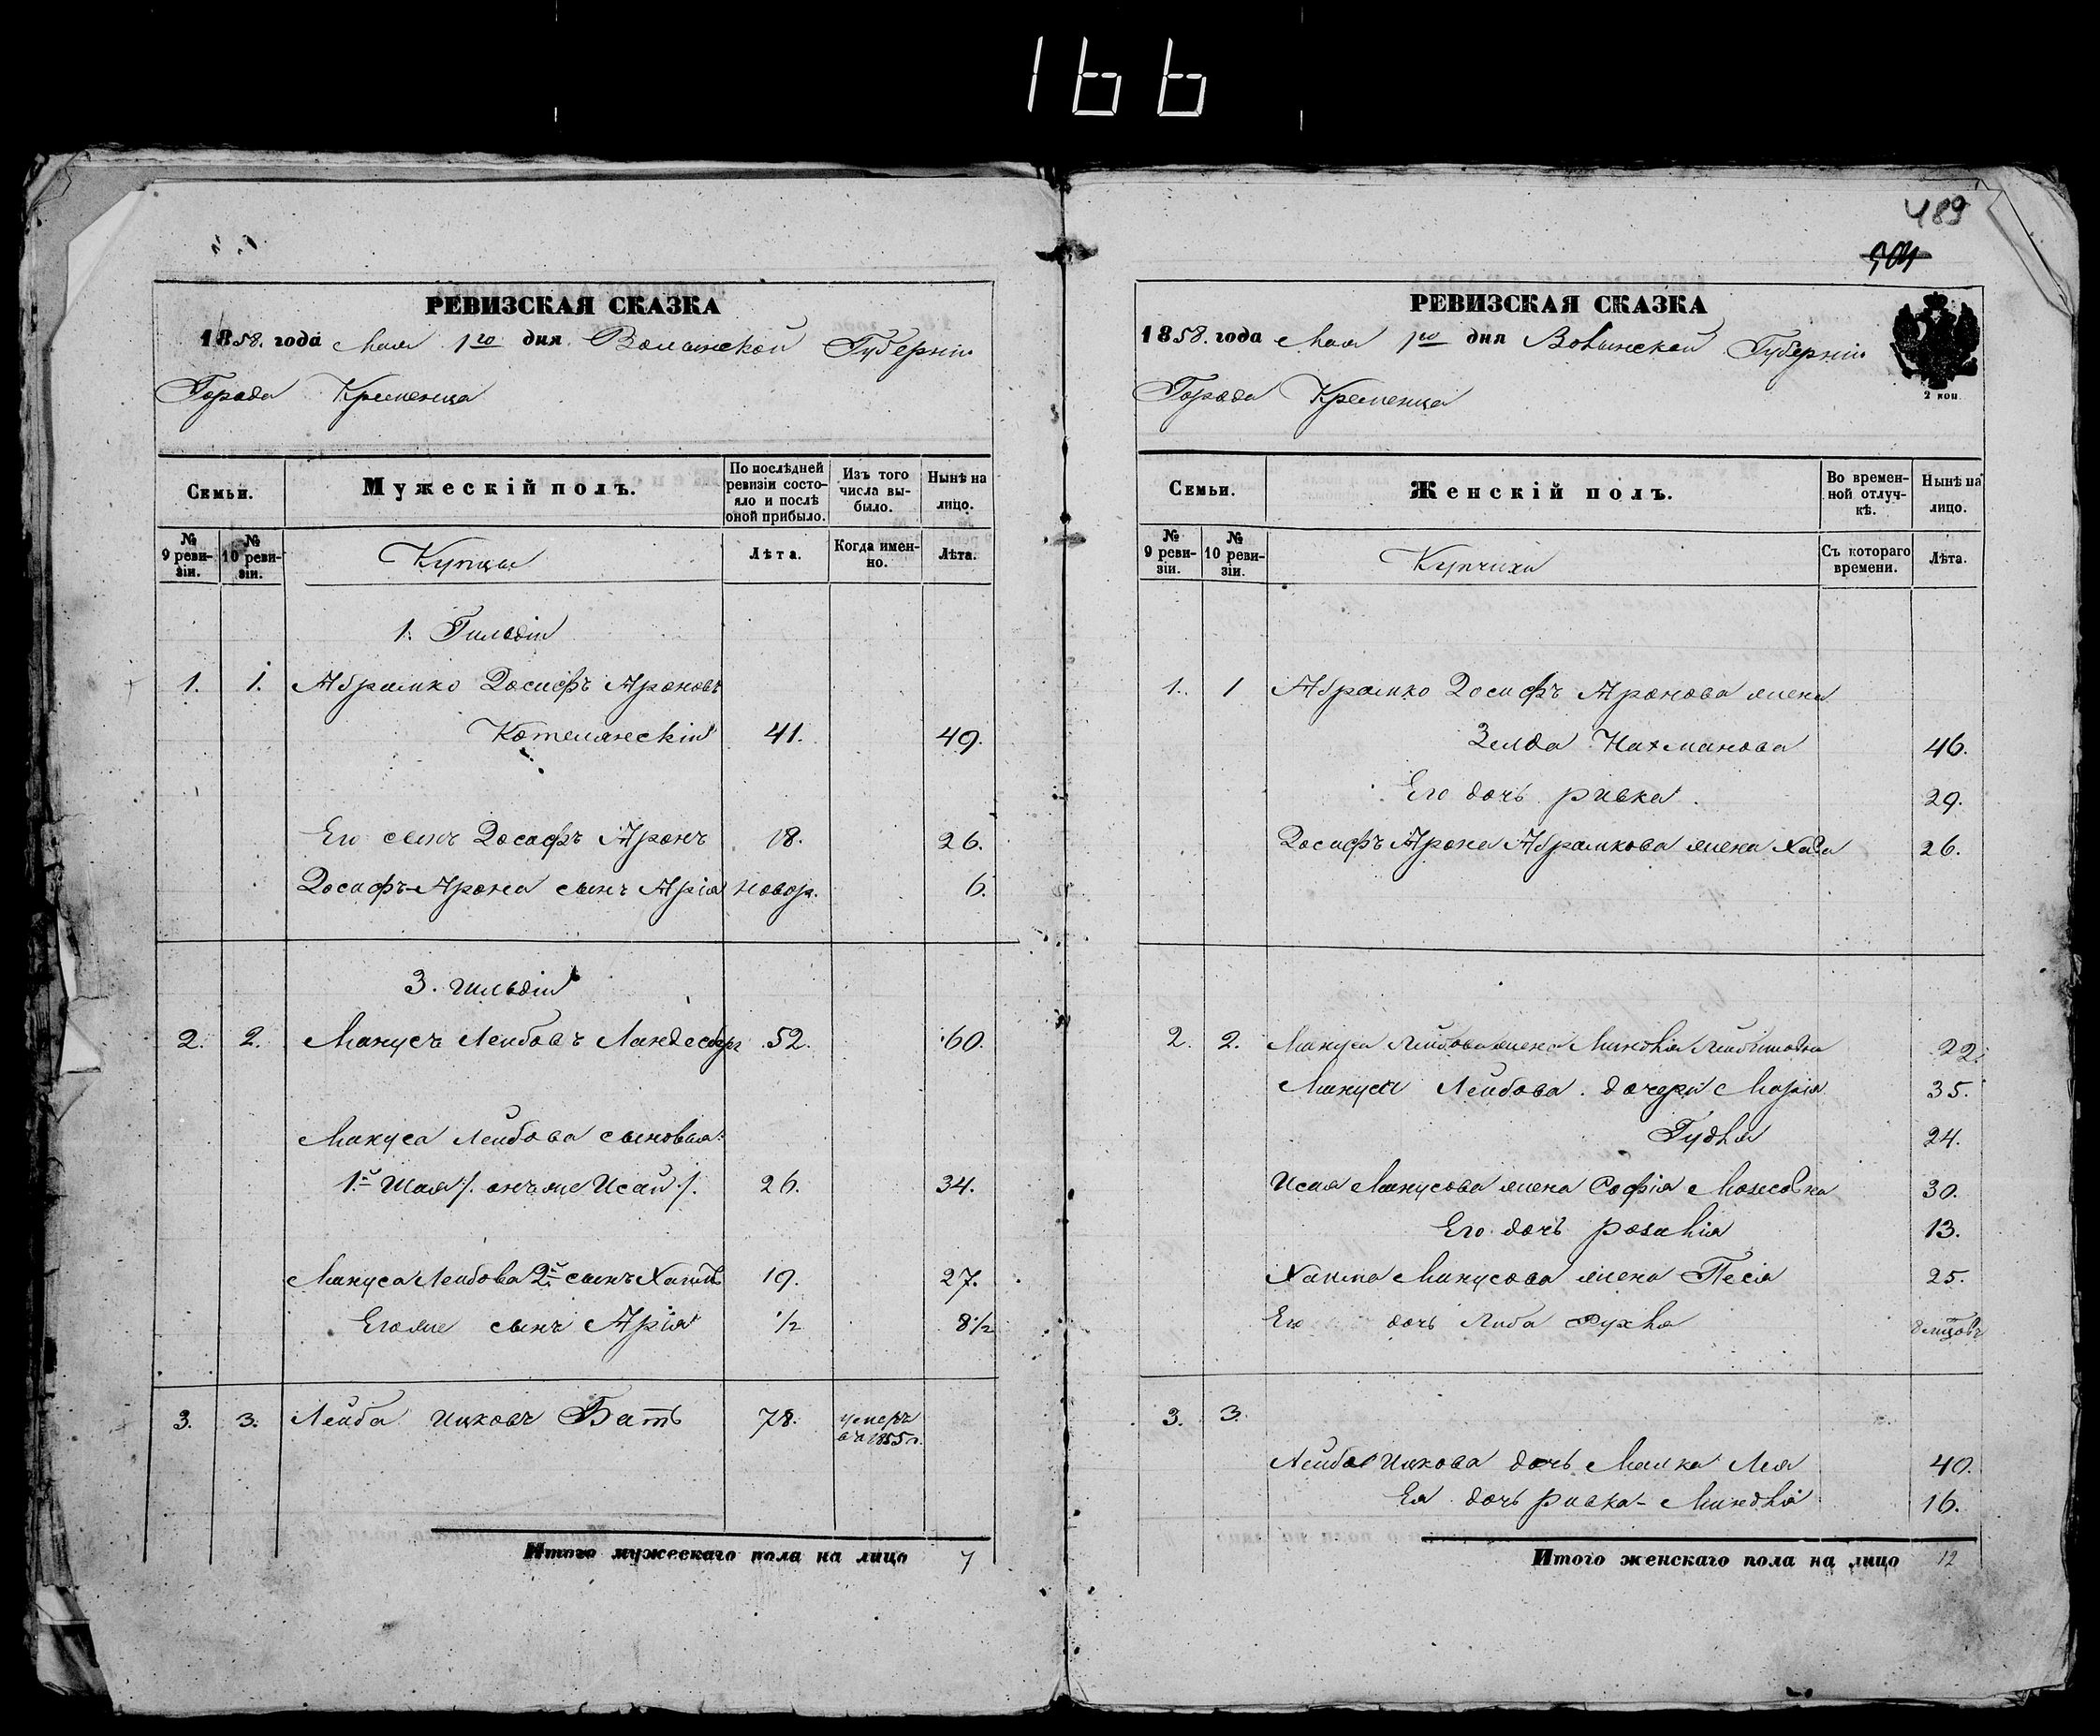 166
РЕВИЗСКАЯ СКАЗКА
1858. года Мая 1го дня Волынской Губерніи
Города Кременца
Семьи.
Мужескій полъ.
По послѣдней ревизіи состояло и послѣ оной прибыло.
Изъ того числа выбыло.
Нынѣ на лицо.
№ 9 ревизіи.
№ 10 ревизіи.
Купцы
Лѣта.
Когда именно.
Лѣта.
1. Гильдіи
1. 1. Абрамко Іосифъ Ароновъ
41. 49.
Его сынъ Іосифъ Аронъ 18. 26.
Іосифъ-Арона сынъ Арія новор. 6.
3. гильдіи
2. 2. Манусъ Лейбовъ Ландесберг 52. 60.
Мануса Лейбова сыновья:
1й Шая /. онъ же Исай ./. 26. 34.
Мануса Лейбова 2й сынъ 19. 27.
Его же сынъ Арія 1/2 8 1/2
3. 3. Лейба Ицковъ Бать 78. умеръ въ 1855 г.
Итого мужескаго пола на лицо 7
489
504
РЕВИЗСКАЯ СКАЗКА
1858. года Мая 1го дня Волынской Губерніи
Города Кременца
2 коп
Семьи.
Женскій полъ.
Во временной отлучкѣ.
Нынѣ на лицо.
№ 9 ревизіи.
№ 10 ревизіи.
Купчихи
Съ котораго времени.
Лѣта.
1. 1 Абрамко Іосифъ Аронова жена
Зелда Нахманова 46.
Его дочь Ривка. 29.
Іосифъ Арона Абрамкова жена Хава 26.
2. 2. Мануса Лейбова жена Миндля 22.
Мануса Лейбова дочери Марія 35.
Гудля 24.
Исая Манусова жена Софія 30.
Его дочь Розалія 13.
Манусова жена Песія 25.
Его дочь Либа Рухля
3. 3.
Лейбы Ицкова дочь Малка Лея 40.
Ея дочь Ривка-Миндля 16.
Итого женскаго пола на лицо 12